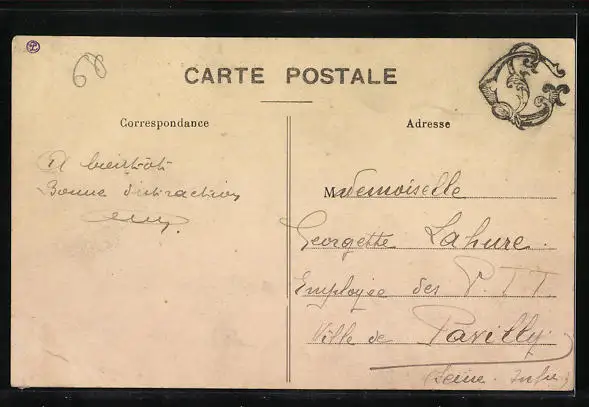 68
CARTE POSTALE
Correspondance
Adresse
A bientôt
Bonne distraction
Mademoiselle
Georgette Lahure.
Employée des P.TT
Ville de Pavilly
(Seine. Infre)